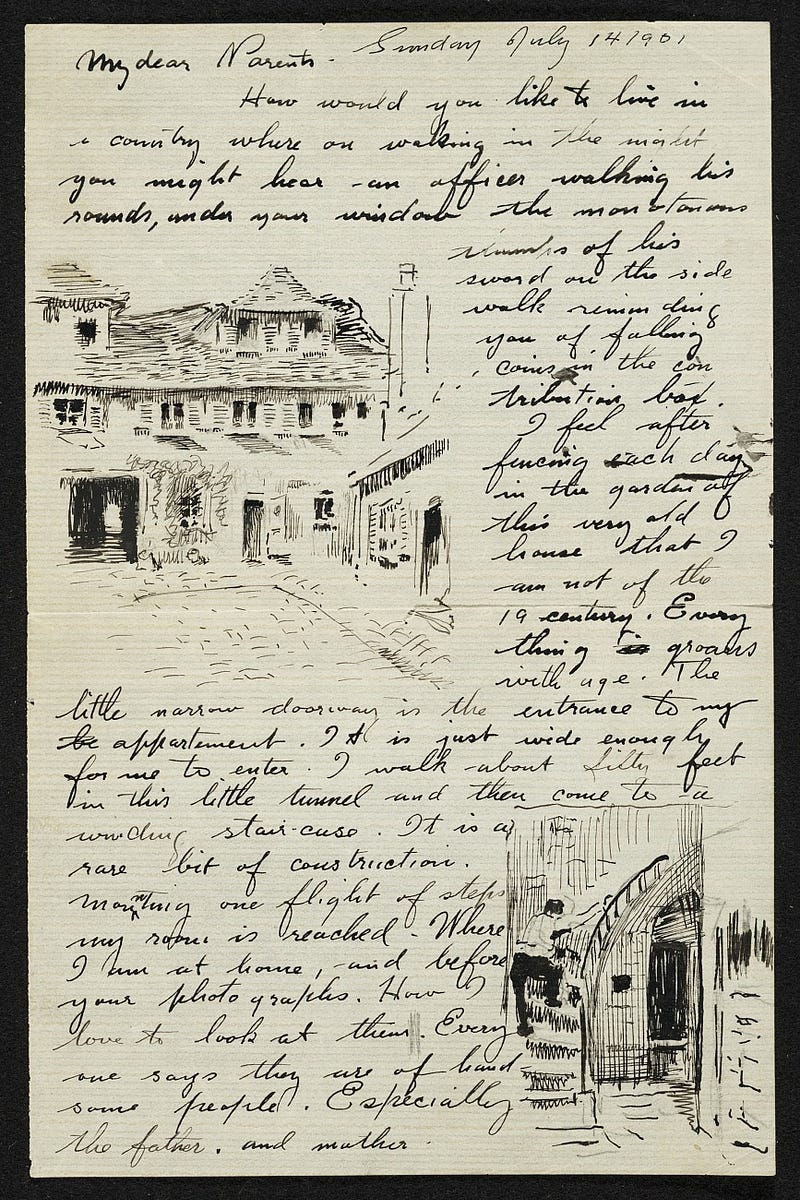 Sunday July 14 1901
My dear Parents.
How would you like to live in
a country where on waking in the night
you might hear an officer walking his
rounds, under your window the monotonous
thumps of his
sword on the side
walk reminding
you of falling
coins in the con
tribution box.
I feel after
fencing each day
in the garden of
this very old
house that I
am not of the
19 century. Every
thing is groans
with age. The
little narrow doorway is the entrance to my
be appartement. It is just wide enough
for me to enter. I walk about fifty feet
in this little tunnel and then come to a
winding stair-case. It is a
rare bit of construction.
Mounting one flight of steps
my room is reached. Where
I am at home, and before
your photographs. How I
love to look at them. Every
one says they are of hand
some people. Especially
the father. and mother.